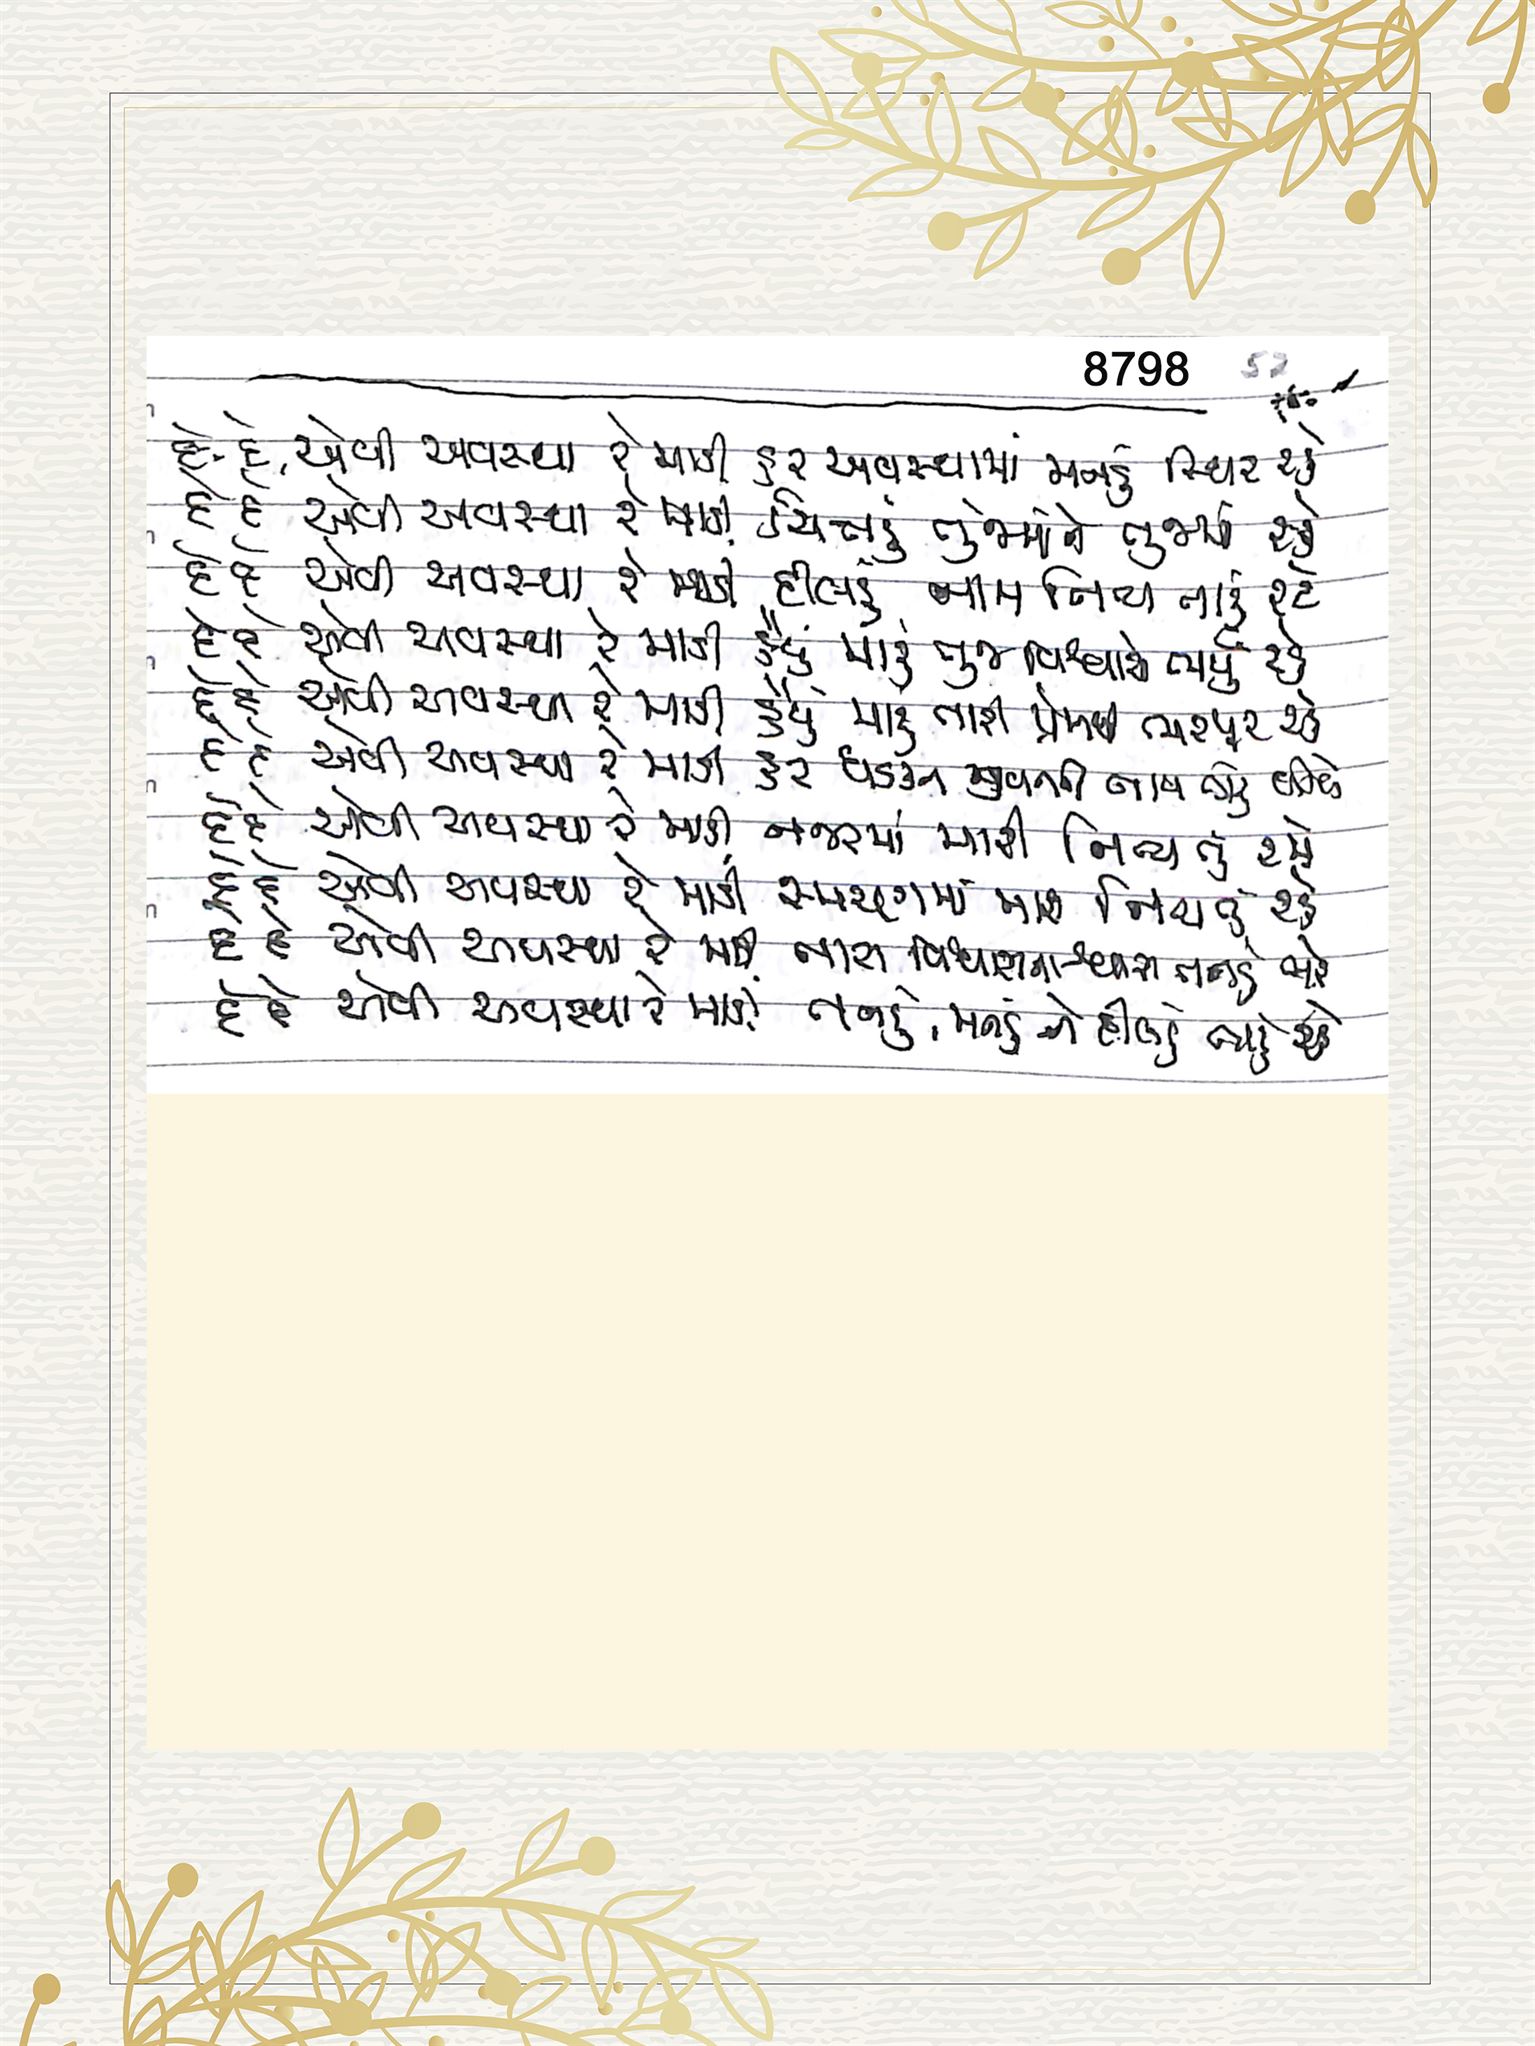 8798
52
દે-દે, એવી અવસ્થા રે માડી હર અવસ્થામાં મનડું સ્થિર રહે
દે દે એવી અવસ્થા રે માડી ચિત્તડું તુજમાં ને તુજમાં રહે
દે દે એવી અવસ્થા રે માડી દીલડું નામ નિત્ય તારું રટે
દે દે એવી અવસ્થા રે માડી હૈયું મારું તુજ વિશ્વાસે ભર્યું રહે
દે દે એવી અવસ્થા રે માડી હૈયું મારું તારા પ્રેમથી ભરપૂર રહે
દે દે એવી અવસ્થા રે માડી હર ધડકન જીવનની નામ તારું
દે દે એવી અવસ્થા રે માડી નજરમાં મારી નિત્ય તું રમે
દે દે એવી અવસ્થા રે માડી સ્મરણમાં મારા નિત્ય તું રહે
દે દે એવી અવસ્થા રે માડી તારા વિશ્વાસના શ્વાસ તનડું ભરે
દે દે એવી અવસ્થા રે માડી તનડું, મનડું ને દીલડું રહે